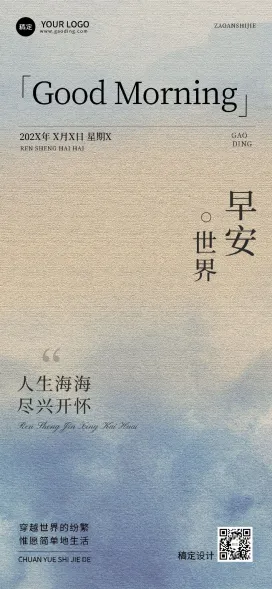 稿定
YOUR LOGO
www.gaoding.com
ZAOANSHIJIE
「Good Morning」
202X年 X月X日 星期X
REN SHENG HAI HAI
GAO
DING
早安
世界
人生海海
尽兴开怀
Ren Sheng Jin Xing Kai Huai
穿越世界的纷繁
惟愿简单地生活
CHUAN YUE SHI JIE DE
稿定设计